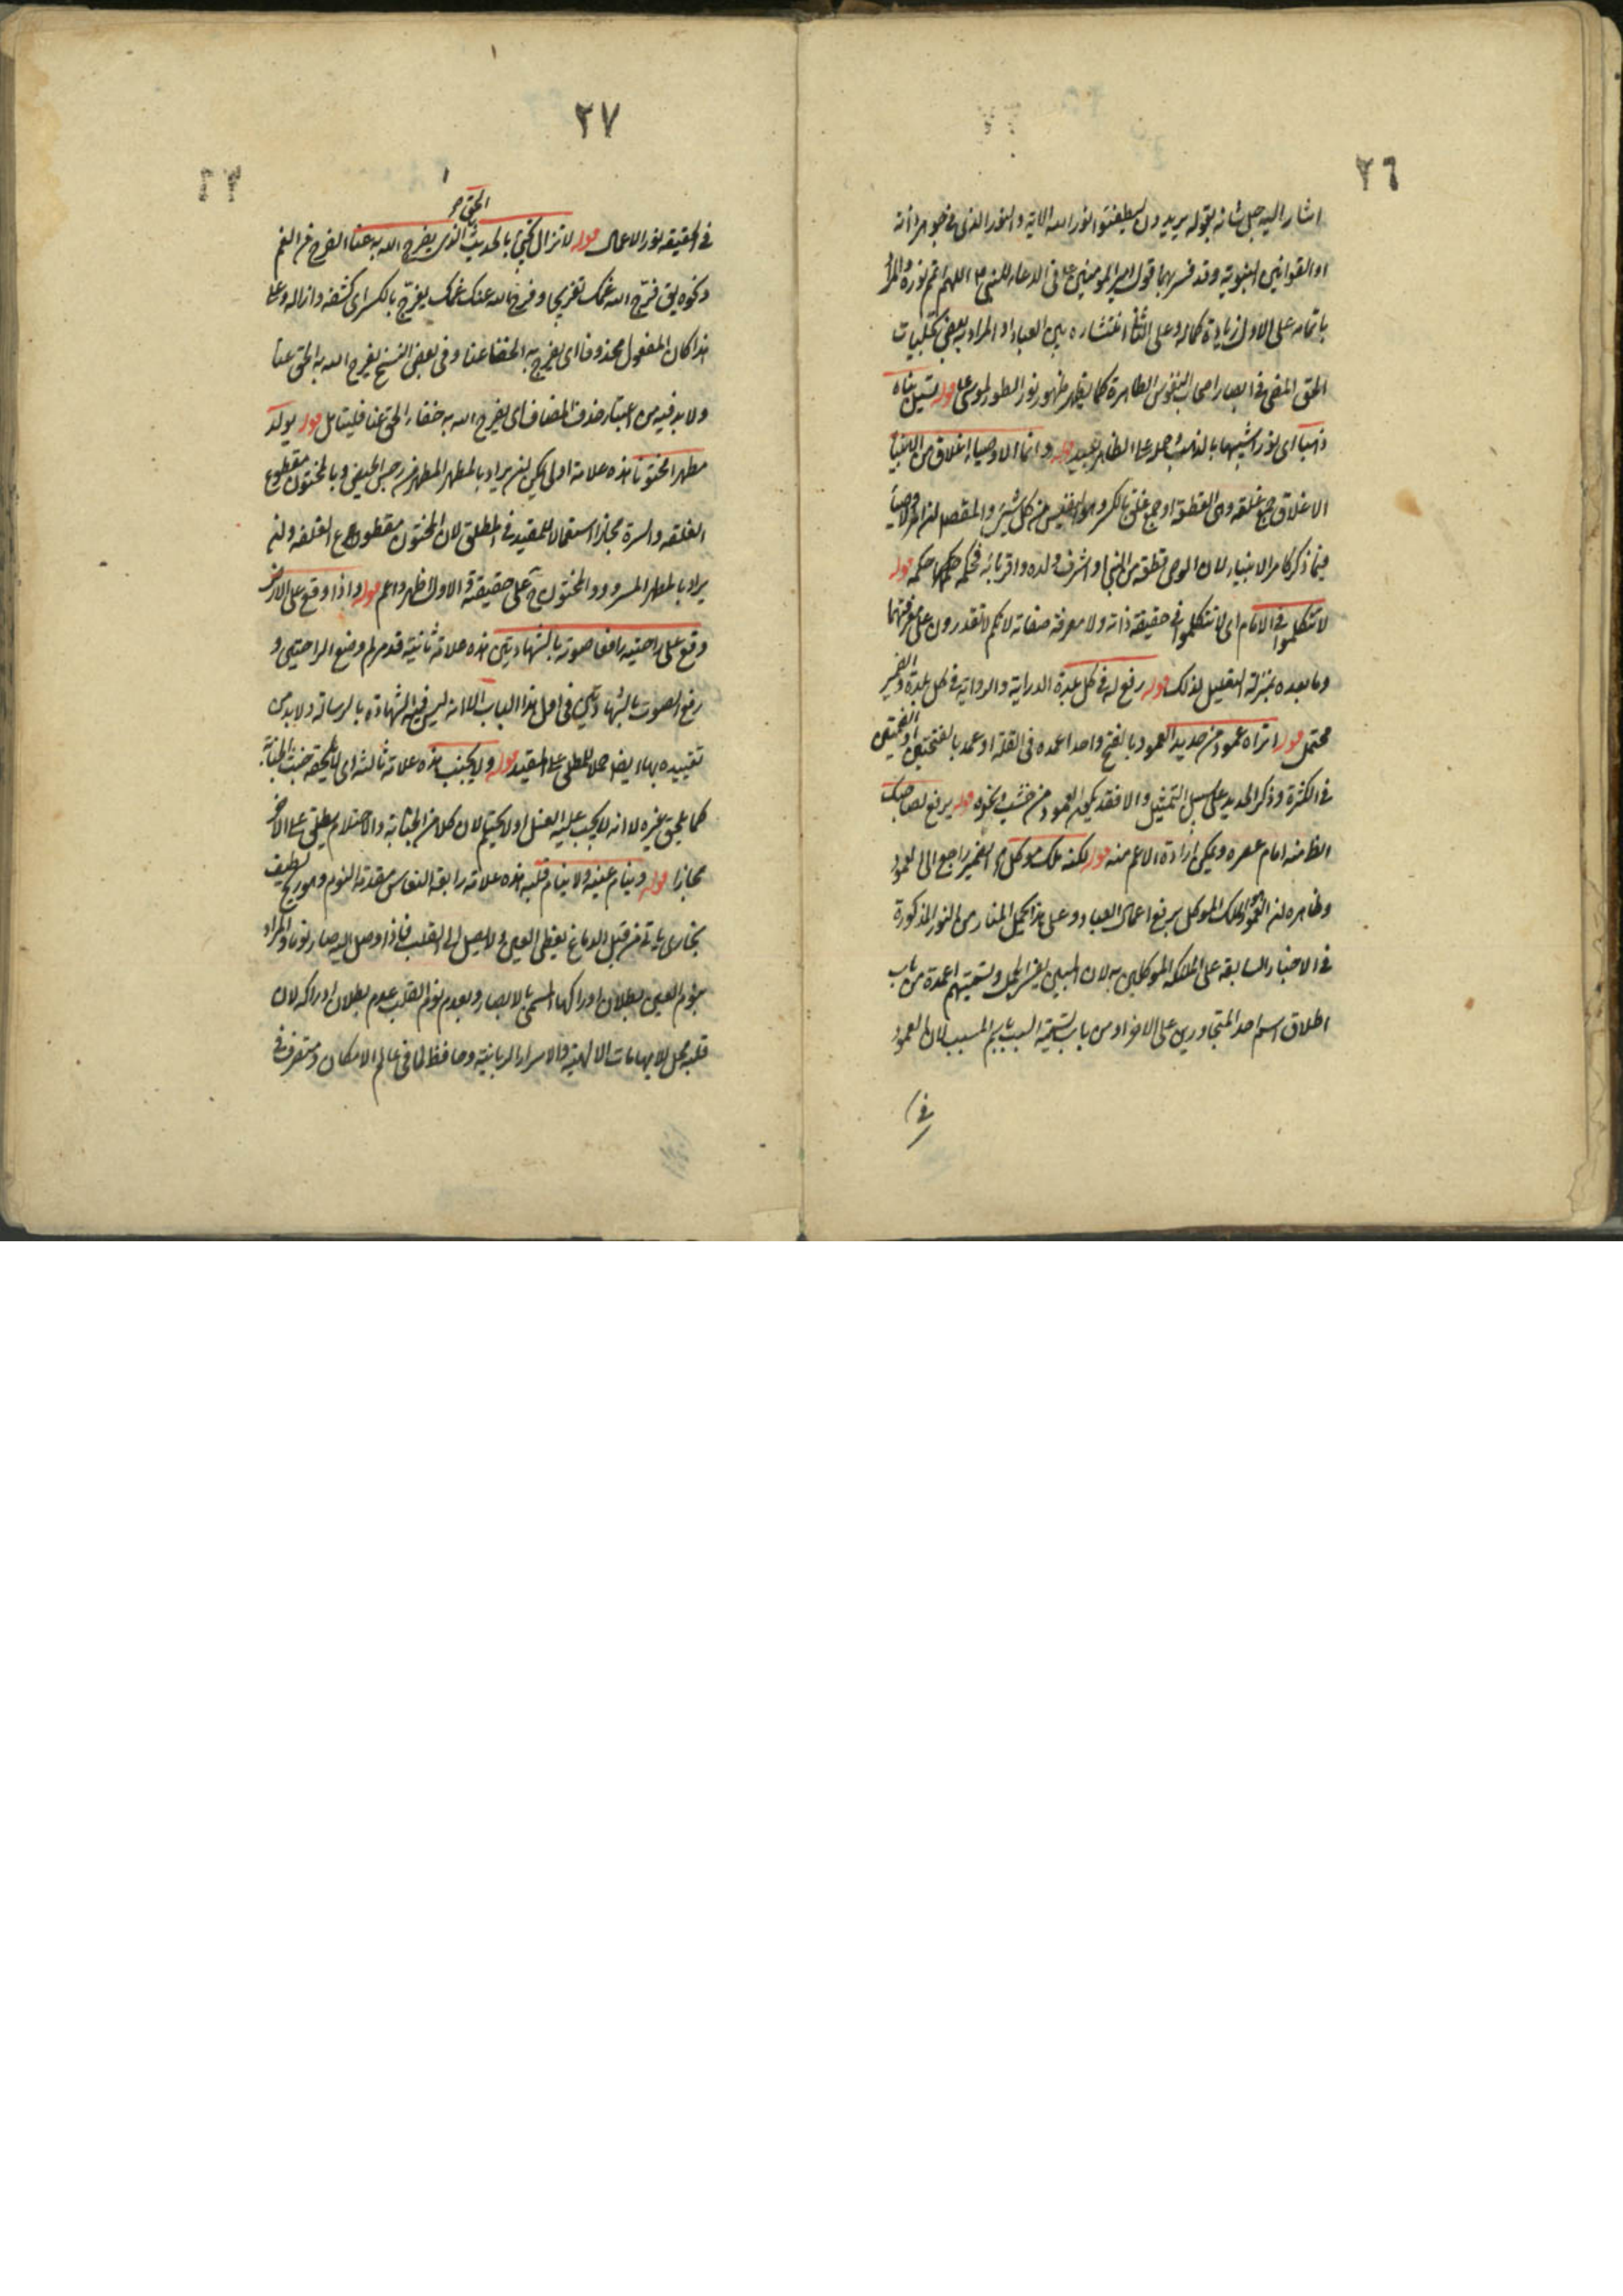 ٢٦
اشار اليه جل شانه بقوله يريدون ليطفئوا نور الله الاية والنور الذى فى جوهر ذاته
او القوانين النبوية وقد فسر بهما قول امير المومنين ع فى الدعاء للنبى ص اللهم اتم نوره والمراد
باتمامه على الاول زيادة كماله وعلى الثانى انتشاره بين العباد او المراد به بعض تجليات
الحق المضى فى ابصار اصحاب النفوس الطاهرة كما يظهر ظهور نور الطور لموسى ع قوله تسيل بناه
ذهبا اى نورا شبيها بالذهب وحمله على الظاهر بعيد قوله وانما الاوصياء اعلاق من الانبياء
الاعلاق جمع علقة وهى القطعة او جمع علق بالكسر وهو النفيس من كل شىء والمقصد ان الاوصياء
فيما ذكر كامر الانبياء لان الوصى قطعة من النبى او اشرف ولده واقربائه فحكمه حكمه قوله
لا تتكلموا فى الامام اى لا تتكلموا فى حقيقة ذاته ولا معرفة صفاته لانكم لا تقدرون على معرفتهما
وما بعده بمنزلة التعليل لذلك قوله رفع له فى كل بلدة الدراية والرواية فى كل بلدة والضمير
محتمل قوله اتراه عمودا من حديد العمود بالفتح واحد اعمده فى القلة او عمد بالفتحتين او الضمتين
فى الكثرة وذكر الحديد على سبيل التمثيل والا فقد يكون العمود من خشب ونحوه قوله يرفع لصاحبك
الظ منه امام عصره ويمكن ارادة الاعم منه قوله لكنه ملك موكل الضمير راجع الى العمود
وظاهره ان العمود هو الملك الموكل يرفع اعمال العباد وعلى هذا يحمل المنار من النور المذكورة
فى الاخبار السابقة على الملائكة الموكلين به لان المبين يفسر المجمل وتسميتهم اعمدة من باب
اطلاق اسم احد المتجاورين على الاخر او من باب تسمية السبب باسم المسبب لان العمود
فى
٢٧
الحق
فى الحقيقة نور الاعمال قوله لا تزال تجئ بالحديث الذى يفرج الله به عنا الفرج من الغم
ونحوه يق فرّج الله غمك تفريجا وفرج الله عنك غمك يفرج بالكسر اى كشفه وازاله وعلى
هذا كان المفعول محذوفا اى يفرج به الخفاء عنا وفى بعض النسخ يفرج الله به الحق عنا
ولا بد فيه من اعتبار حذف المضاف اى يفرج الله به خفاء الحق عنا فليتامل قوله يولد
مطهرا مختونا هذه علامة اولى يمكن ان يراد بالمطهر المطهر من رجس الحيض وبالمختون مقطوع
الغلفة والسرة مجازا استعمالا للمقيد فى المطلق لان المختون مقطوع الغلفة وان
يراد بالمطهر المسرور والمختون ح على حقيقته والاول اظهر واعم قوله واذا وقع على الارض
وقع على راحتيه رافعا صوته بالشهادتين هذه علامة ثانية قد مر لم وضع الراحتين و
رفع الصوت بالشهادتين فى اول هذا الباب الا انه ليس فيه الشهادة بالرسالة ولا بد من
تقييده بها ايضا حملا للمطلق على المقيد قوله ولا يجنب هذه علامة ثالثة اى لا يلحقه خبث الجنابة
كما يلحق غيره لا انه لا يجب عليه الغسل او لا يحتلم لان كلا من الجنابة والاحتلام يطلق على الاخر
مجازا قوله وينام عينه ولا ينام قلبه هذه علامة رابعة النعاس مقدمة النوم وهو ريح لطيف
بخارى ياتى من قبل الدماغ يغطى العين ولا يصل الى القلب فاذا وصل اليه صار نوما والمراد
بنوم العين بطلان ادراكها المسمى بالابصار وبعدم نوم القلب عدم بطلان ادراكه لان
قلبه محل للالهامات الالهية والاسرار الربانية وحافظ لما فى عالم الامكان ومتصرف فى